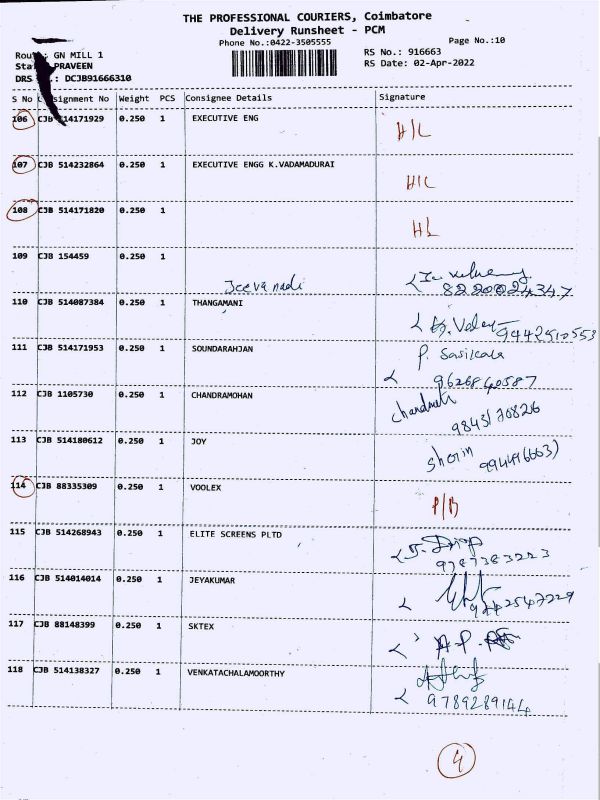 THE PROFESSIONAL COURIERS, Coimbatore
Delivery Runsheet - PCM
Phone No.:0422-3505555 Page No.:10
GN MILL 1 RS No.: 916663
PRAVEEN RS Date: 02-Apr-2022
DRS DCJB91666310
S No signment No Weight PCS Consignee Details Signature
106 CJB 514171929 0.250 1 EXECUTIVE ENG H/L
107 CJB 514232864 0.250 1 EXECUTIVE ENGG K.VADAMADURAI H/C
108 CJB 514171820 0.250 1 HL
109 CJB 154459 0.250 1 Jeeva nadi
8220024347
110 CJB 514087384 0.250 1 THANGAMANI
9442510553
111 CJB 514171953 0.250 1 SOUNDARAHJAN P. Sasikala
9626840587
112 CJB 1105730 0.250 1 CHANDRAMOHAN
9843170826
113 CJB 514180612 0.250 1 JOY sherin
114 CJB 88335309 0.250 1 VOOLEX P/B
115 CJB 514268943 0.250 1 ELITE SCREENS PLTD
9787383223
116 CJB 514014014 0.250 1 JEYAKUMAR
9442547229
117 CJB 88148399 0.250 1 SKTEX
118 CJB 514138327 0.250 1 VENKATACHALAMOORTHY
9789289144
4